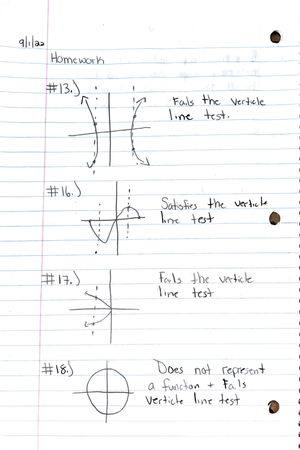 9/1/22
Homework
#13.)
Fails the verticle
line test.
#16.)
Satisfies the verticle
line test
#17.)
Fails the verticle
line test
#18.)
Does not represent
a function + Fails
verticle line test